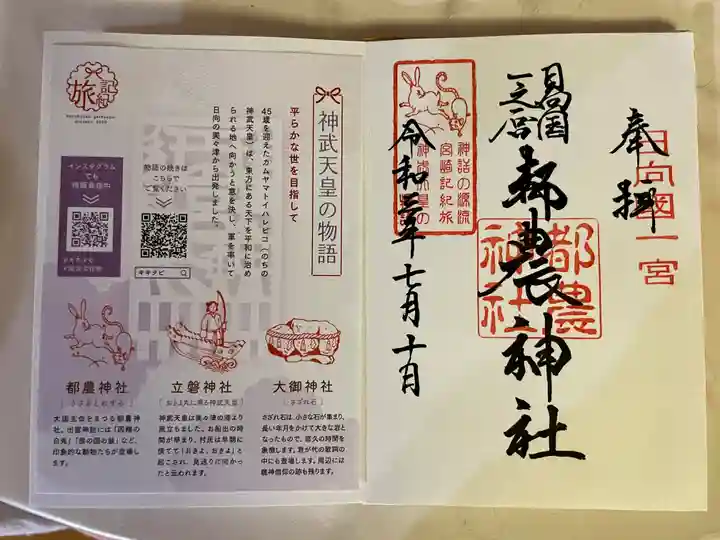 奉拝
日向國一宮
日向国
一之宮
都農神社
都農
神社
神話の源流
宮崎記紀旅
令和三年七月十日
神武天皇の物語
平らかな世を目指して
45歳を迎えたカムヤマトイハレビコ(のちの
神武天皇)は、東方にある天下を平和に治め
られる地へ向かうと意を決し、軍を率いて
日向の美々津から出発しました。
旅
記紀
物語の続きは
こちらで
ご覧ください
キキタビ
インスタグラム
でも
情報発信中
都農神社
立磐神社
大御神社
[うさぎとねずみ]
[おきよ丸に乗る神武天皇]
[さざれ石]
大国主命をまつる都農神
社。出雲神話には「因幡の
白兎」「根の国の鼠」など、
印象的な動物たちが登場し
ます。
神武天皇は美々津の港より
旅立ちました。お船出の時
間が早まり、村民は早朝に
慌てて「おきよ、おきよ」と
起こされ、見送りに向かっ
たと云われます。
さざれ石は、小さな石が集まり、
長い年月をかけて大きな岩と
なったもので、悠久の時間を
象徴します。君が代の歌詞の
中にも登場します。周辺には
龍神信仰の跡も残ります。